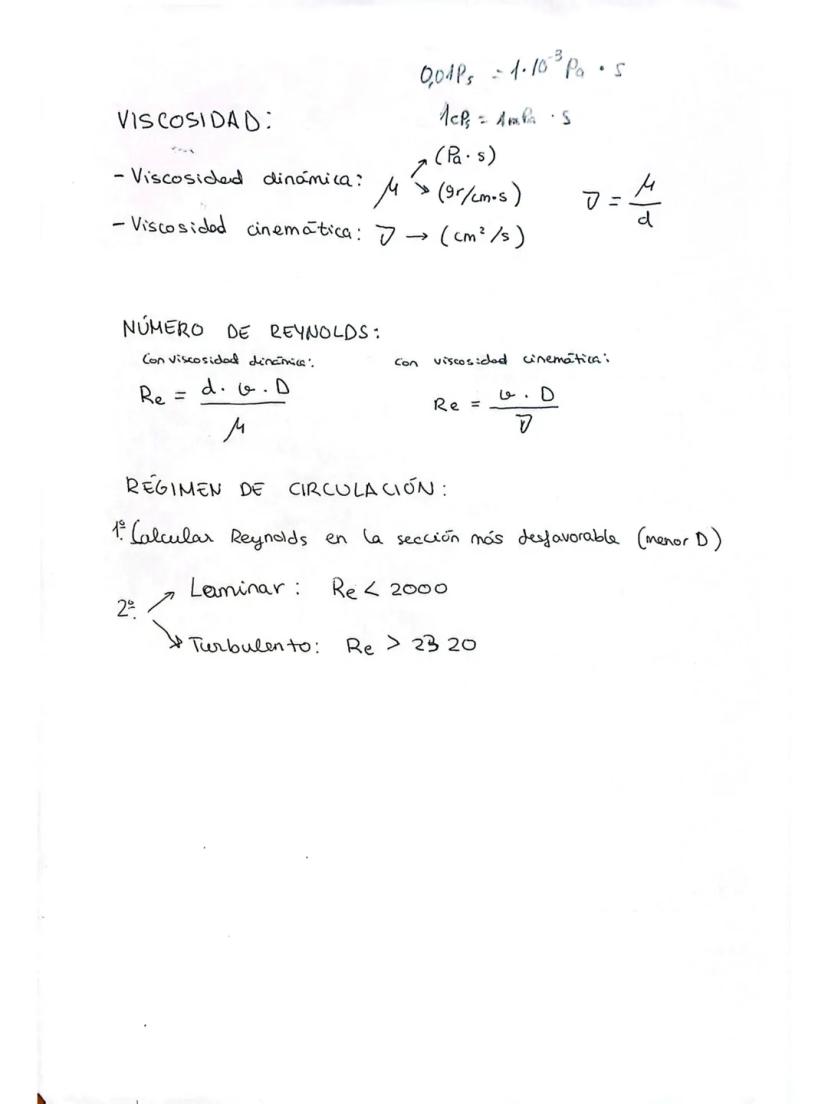 0,01Ps = 1·10⁻³ Pa · s
VISCOSIDAD:
1cPs = 1mPa · s
- Viscosidad dinámica: μ ↗ (Pa·s)
↘ (gr/cm·s)
ν̄ = μ / d
- Viscosidad cinemática: ν̄ → (cm²/s)
NÚMERO DE REYNOLDS:
Con viscosidad dinámica:
Re = d · v · D / μ
Con viscosidad cinemática:
Re = v · D / ν̄
RÉGIMEN DE CIRCULACIÓN:
1º. Calcular Reynolds en la sección más desfavorable (menor D)
2º. ↗ Laminar: Re < 2000
↘ Turbulento: Re > 2320